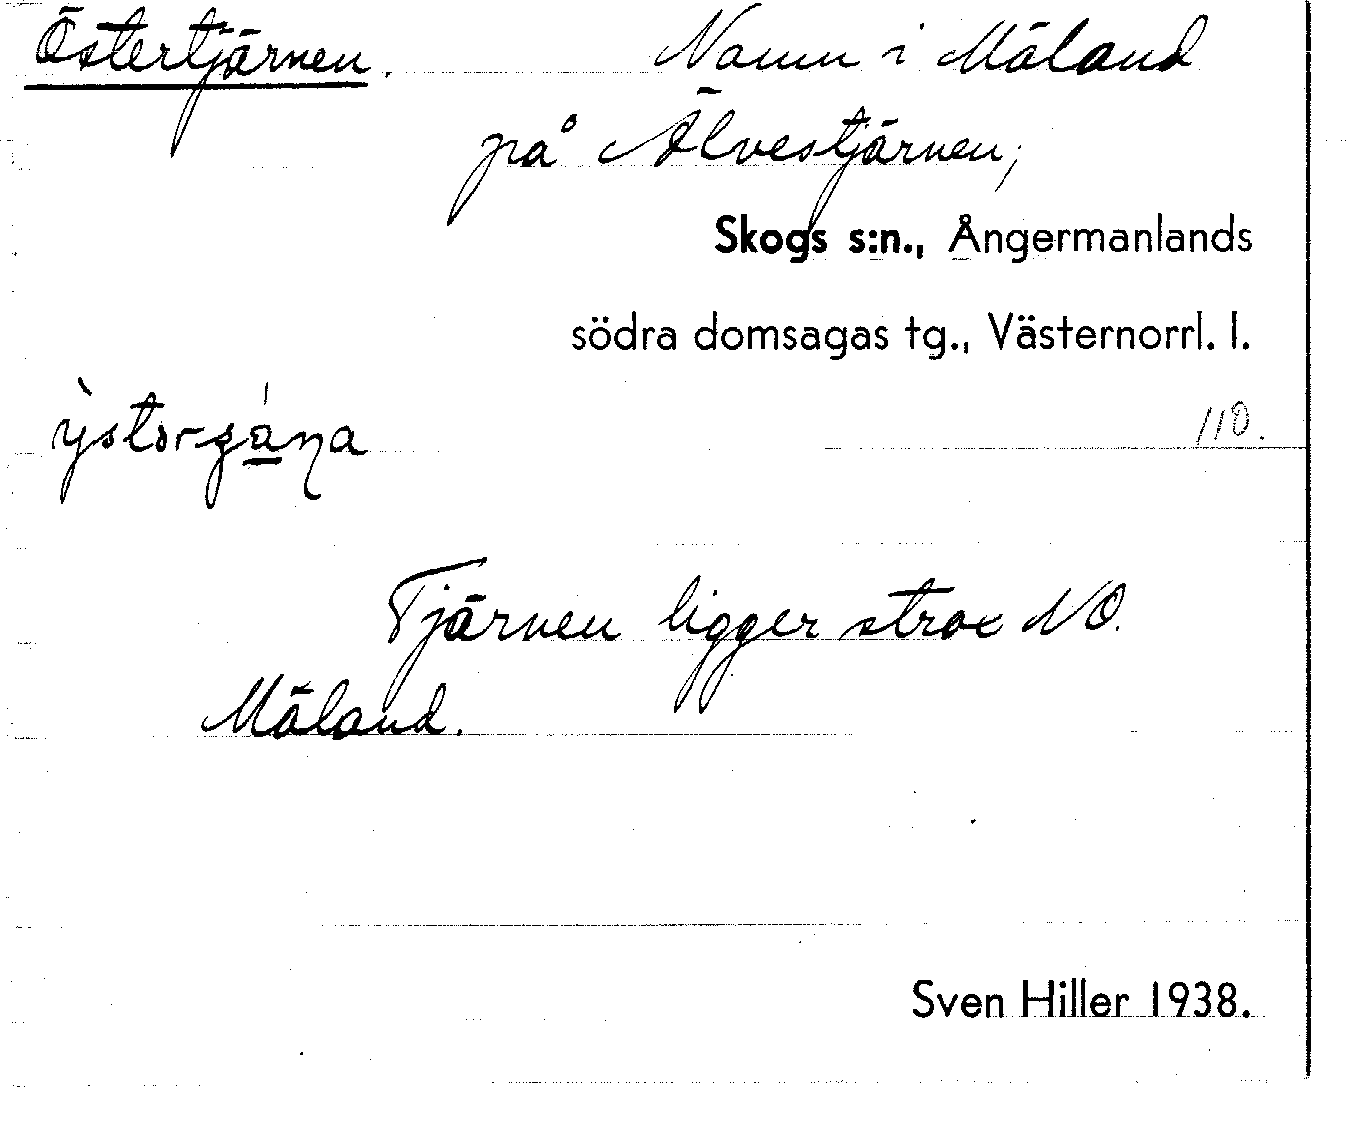 Östertjärnen. Namn i Mäland
på Älvestjärnen,
Skogs s:n., Ångermanlands
södra domsagas tg., Västernorrl. l.
110.
Tjärnen ligger strax NO.
Mäland.
Sven Hiller 1938.